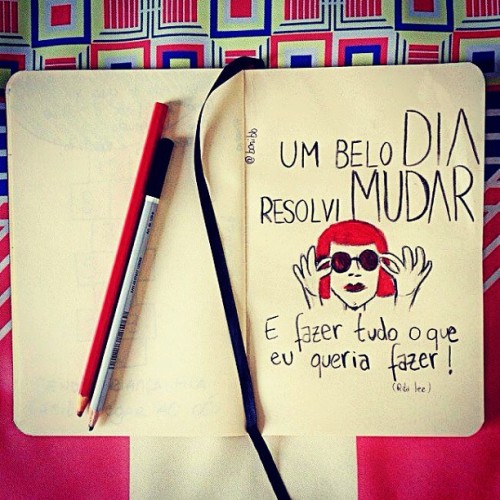 UM BELO DIA
RESOLVI MUDAR
E fazer tudo o que
eu queria fazer!
(Rita lee)